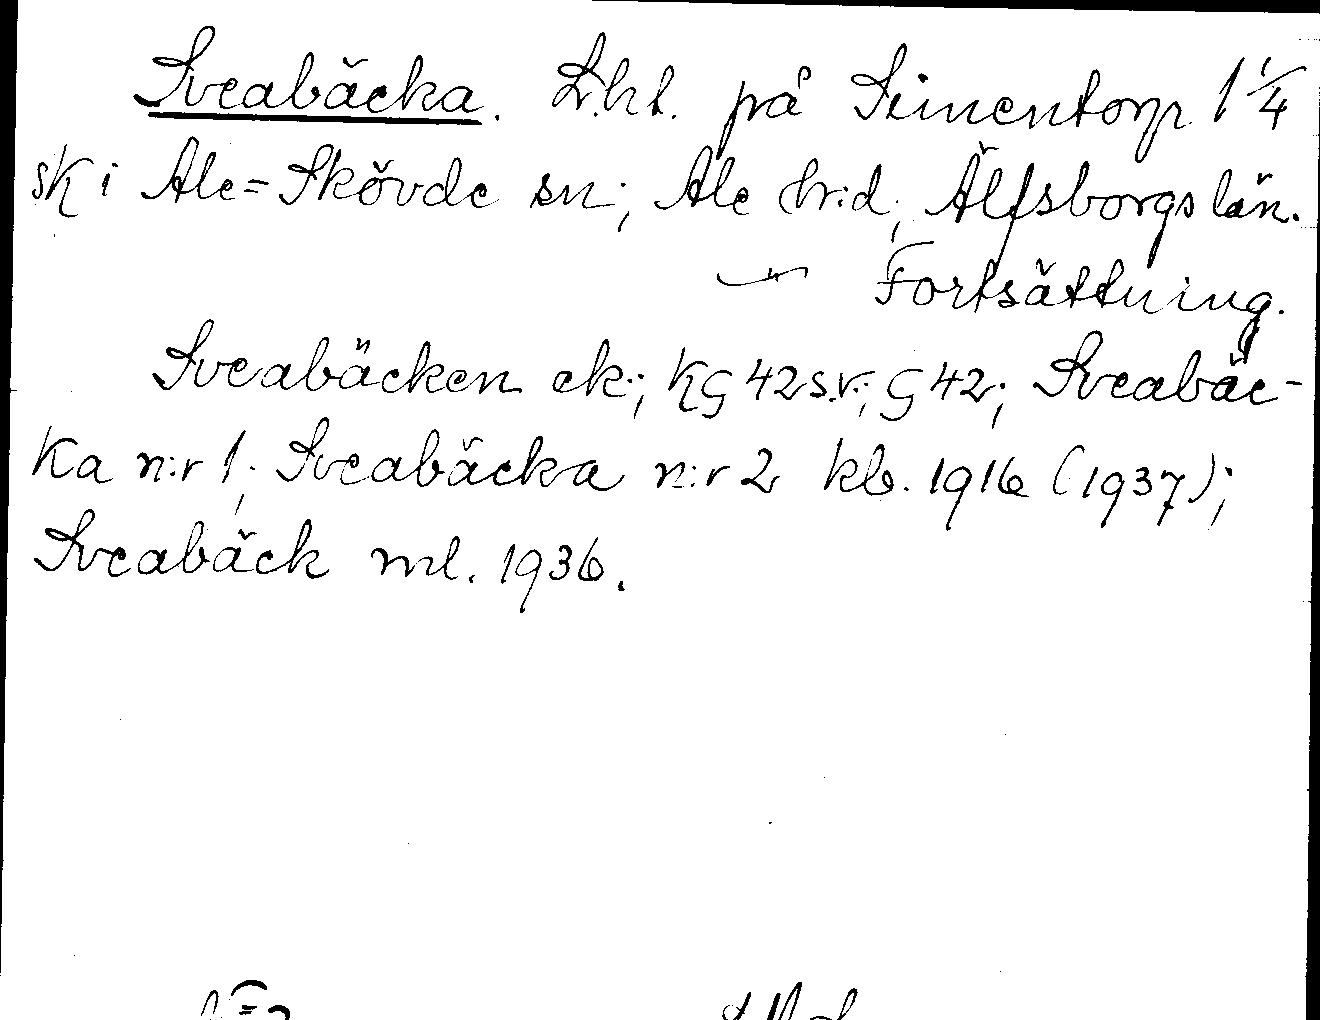 Sveabäcka. Lht. på Simentorp 1 1/4
sk i Ale=Skövde sn; Ale h:d; Älfsborgs län.
— " — Fortsättning.
Sveabäcken ek; KG 42 s.v.; G 42; Sveabäc-
ka n:r 1; Sveabäcka n:r 2 kb. 1916 (1937);
Sveabäck ml. 1936.